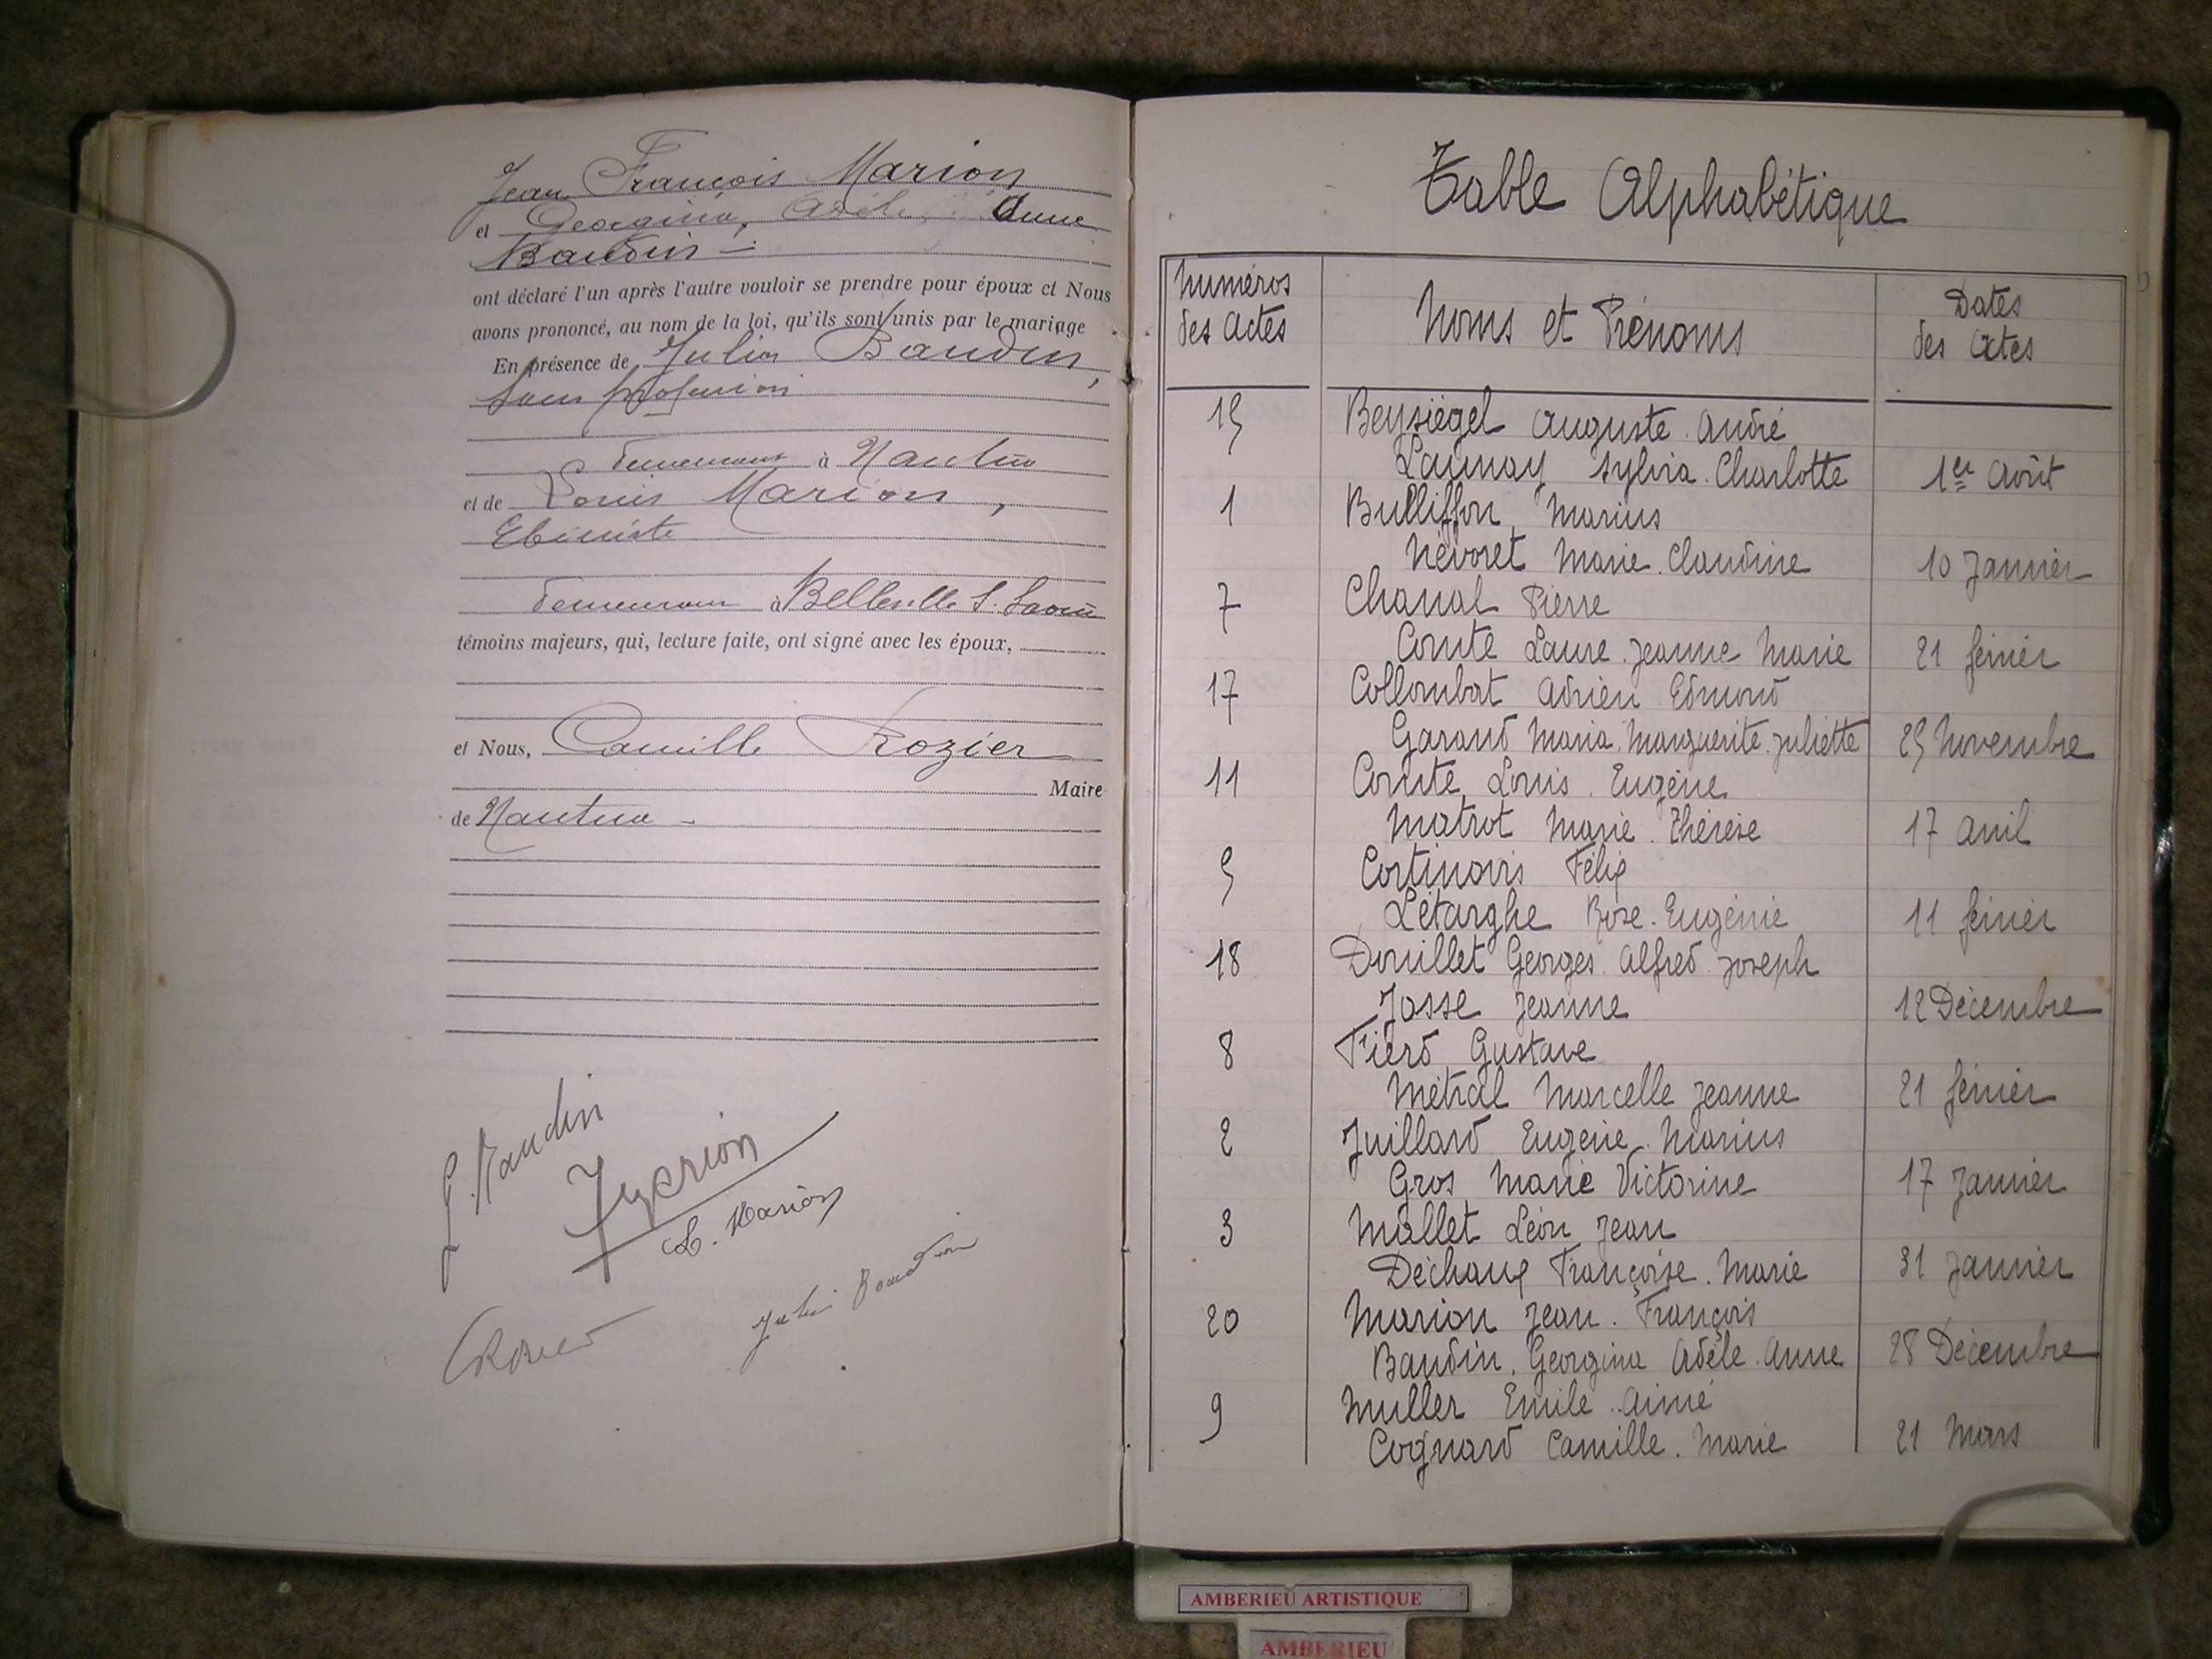 Jean François Marion
et Georgina, Adèle, Anne
Baudin
ont déclaré l'un après l'autre vouloir se prendre pour époux et Nous
avons prononcé, au nom de la loi, qu'ils sont unis par le mariage
En présence de Julien Baudin,
sans profession
demeurant à Nantua
et de Louis Marion,
Ebéniste
demeurant à Belleville s. Saône
témoins majeurs, qui, lecture faite, ont signé avec les époux,
et Nous, Camille Rozier
Maire
de Nantua
G. Baudin
L. Marion
Table Alphabétique
Numéros des Actes
Noms et Prénoms
Dates des Actes
15 Beysiégel Auguste. André
Launay Sylvia. Charlotte 1er Août
1 Bulliffon Marius
Névoret Marie. Claudine 10 Janvier
7 Chanal Pierre
Comte Laure. Jeanne Marie 21 février
17 Collombat Adrien Edmond
Garand Maria. Marguerite. Juliette 25 Novembre
11 Comte Louis. Eugène
Matrot Marie. Thérèse 17 Avril
5 Cortinovis Félix
Létarghe Rose. Eugénie 11 février
18 Douillet Georges. Alfred. Joseph
Josse Jeanne 12 Décembre
8 Fierd Gustave
Métral Marcelle Jeanne 21 février
2 Juillard Eugène. Marius
Gros Marie Victorine 17 Janvier
3 Mallet Léon Jean
Déchaux Françoise. Marie 31 Janvier
20 Marion Jean. François
Baudin. Georgina Adèle. Anne 28 Décembre
9 Muller Emile. Aimé
Cognard Camille. Marie 21 Mars
AMBERIEU ARTISTIQUE
AMBERIEU